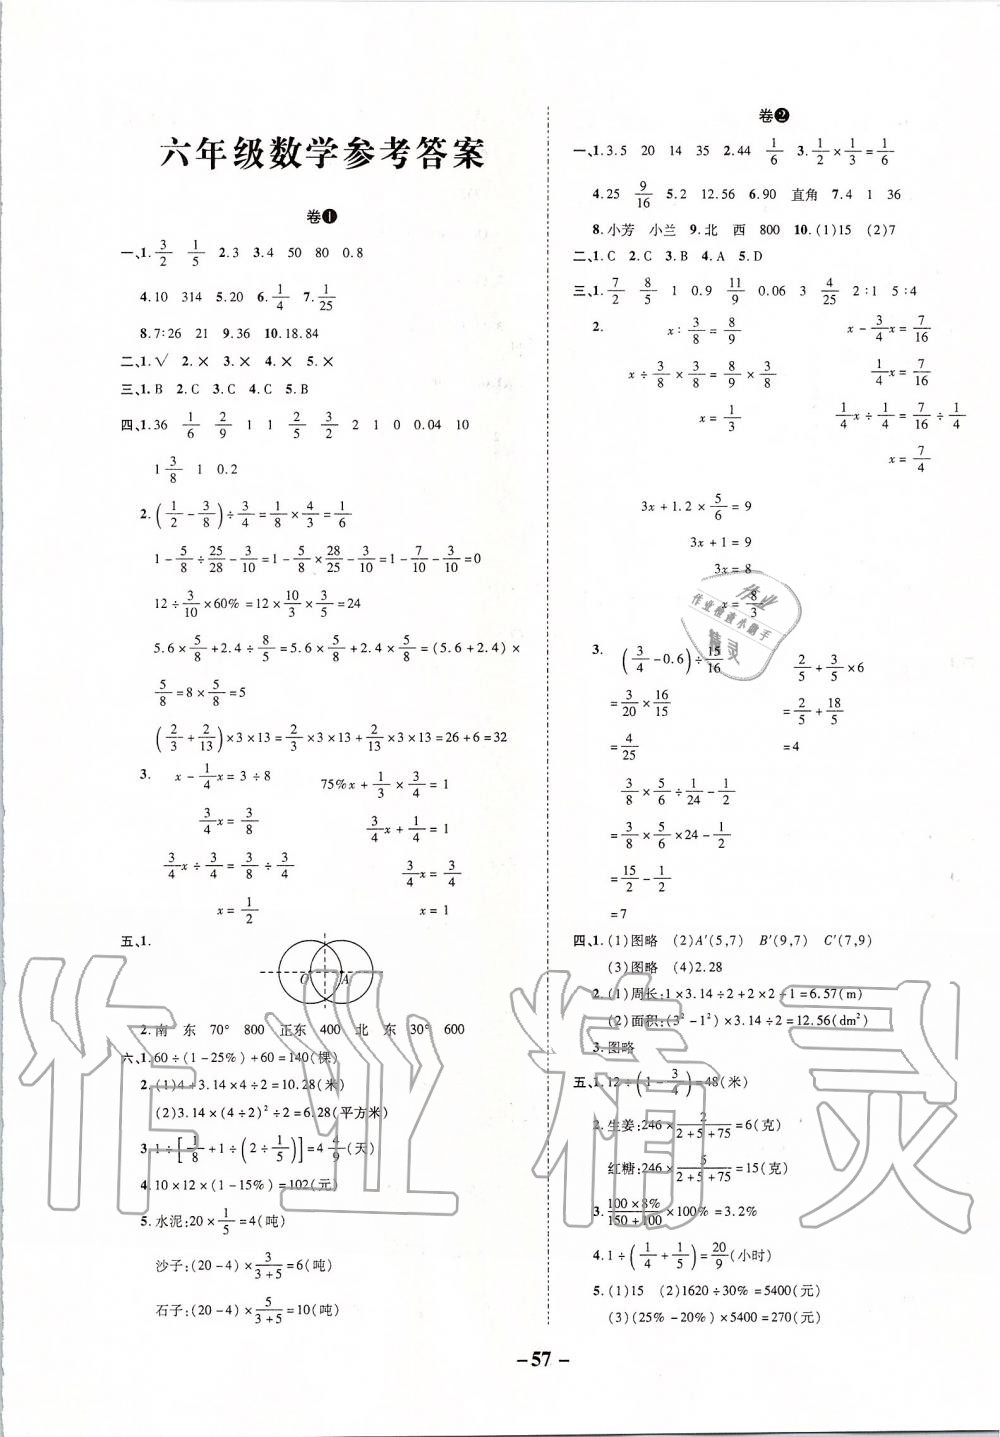 六年级数学参考答案
卷❶
一、1. 3/2 1/5 2.3 3.4 50 80 0.8
4.10 314 5.20 6. 1/4 7. 1/25
8.7∶26 21 9.36 10.18.84
二、1.√ 2.× 3.× 4.× 5.×
三、1.B 2.C 3.C 4.C 5.B
四、1.36 1/6 2/9 1 1 2/5 3/2 2 1 0 0.04 10
1 3/8 1 0.2
2.(1/2-3/8)÷3/4=1/8×4/3=1/6
1-5/8÷25/28-3/10=1-5/8×28/25-3/10=1-7/10-3/10=0
12÷3/10×60%=12×10/3×3/5=24
5.6×5/8+2.4÷8/5=5.6×5/8+2.4×5/8=(5.6+2.4)×
5/8=8×5/8=5
(2/3+2/13)×3×13=2/3×3×13+2/13×3×13=26+6=32
3. x-1/4x=3÷8 75%x+1/3×3/4=1
3/4x=3/8 3/4x+1/4=1
3/4x÷3/4=3/8÷3/4 3/4x=3/4
x=1/2 x=1
五、1.
C A
2.南 东 70° 800 正东 400 北 东 30° 600
六、1.60÷(1-25%)+60=140(棵)
2.(1)4+3.14×4÷2=10.28(米)
(2)3.14×(4÷2)²÷2=6.28(平方米)
3.1÷[1/8+1÷(2÷1/5)]=4 4/9(天)
4.10×12×(1-15%)=102(元)
5.水泥:20×1/5=4(吨)
沙子:(20-4)×3/(3+5)=6(吨)
石子:(20-4)×5/(3+5)=10(吨)
卷❷
一、1.3.5 20 14 35 2.44 1/6 3. 1/2×1/3=1/6
4.25 9/16 5.2 12.56 6.90 直角 7.4 1 36
8.小芳 小兰 9.北 西 800 10.(1)15 (2)7
二、1.C 2.C 3.B 4.A 5.D
三、1. 7/2 8/5 1 0.9 11/9 0.06 3 4/25 2∶1 5∶4
2. x∶3/8=8/9 x-3/4x=7/16
x÷3/8×3/8=8/9×3/8 1/4x=7/16
x=1/3 1/4x÷1/4=7/16÷1/4
x=7/4
3x+1.2×5/6=9
3x+1=9
3x=8
x=8/3
3. (3/4-0.6)÷15/16 2/5+3/5×6
=3/20×16/15 =2/5+18/5
=4/25 =4
3/8×5/6÷1/24-1/2
=3/8×5/6×24-1/2
=15/2-1/2
=7
四、1.(1)图略 (2)A′(5,7) B′(9,7) C′(7,9)
(3)图略 (4)2.28
2.(1)周长:1×3.14÷2+2×2+1=6.57(m)
(2)面积:(3²-1²)×3.14÷2=12.56(dm²)
3.图略
五、1.12÷(1-3/4)=48(米)
2.生姜:246×2/(2+5+75)=6(克)
红糖:246×5/(2+5+75)=15(克)
3. (100×8%)/(150+100)×100%=3.2%
4.1÷(1/4+1/5)=20/9(小时)
5.(1)15 (2)1620÷30%=5400(元)
(3)(25%-20%)×5400=270(元)
- 57 -
作业
作业检查小助手
精灵
作业精灵